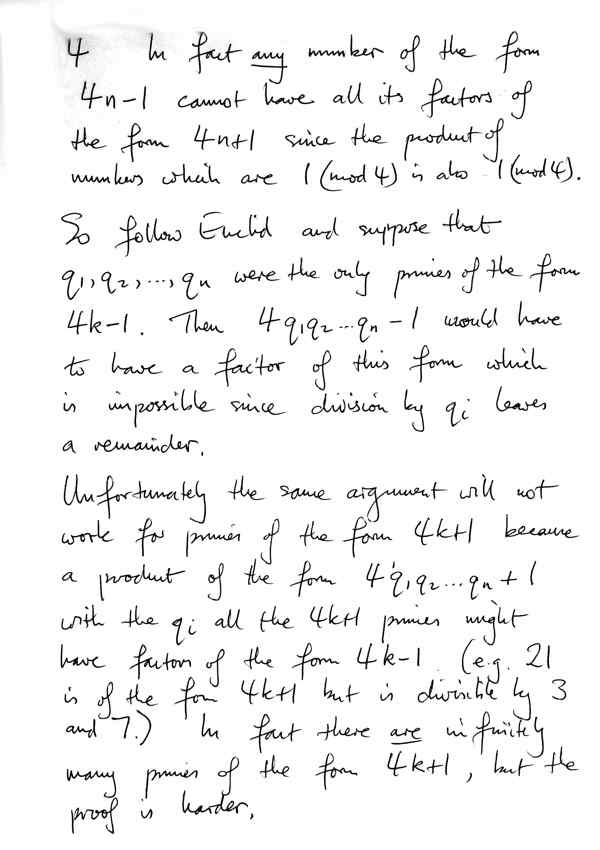 4 In fact any number of the form
4n-1 cannot have all its factors of
the form 4n+1 since the product of
numbers which are 1 (mod 4) is also 1 (mod 4).
So follow Euclid and suppose that
q₁, q₂, ..., qₙ were the only primes of the form
4k-1. Then 4q₁q₂...qₙ - 1 would have
to have a factor of this form which
is impossible since division by qᵢ leaves
a remainder.
Unfortunately the same argument will not
work for primes of the form 4k+1 because
a product of the form 4q₁q₂...qₙ + 1
with the qᵢ all the 4k+1 primes might
have factors of the form 4k-1. (e.g. 21
is of the form 4k+1 but is divisible by 3
and 7.) In fact there are infinitely
many primes of the form 4k+1, but the
proof is harder.